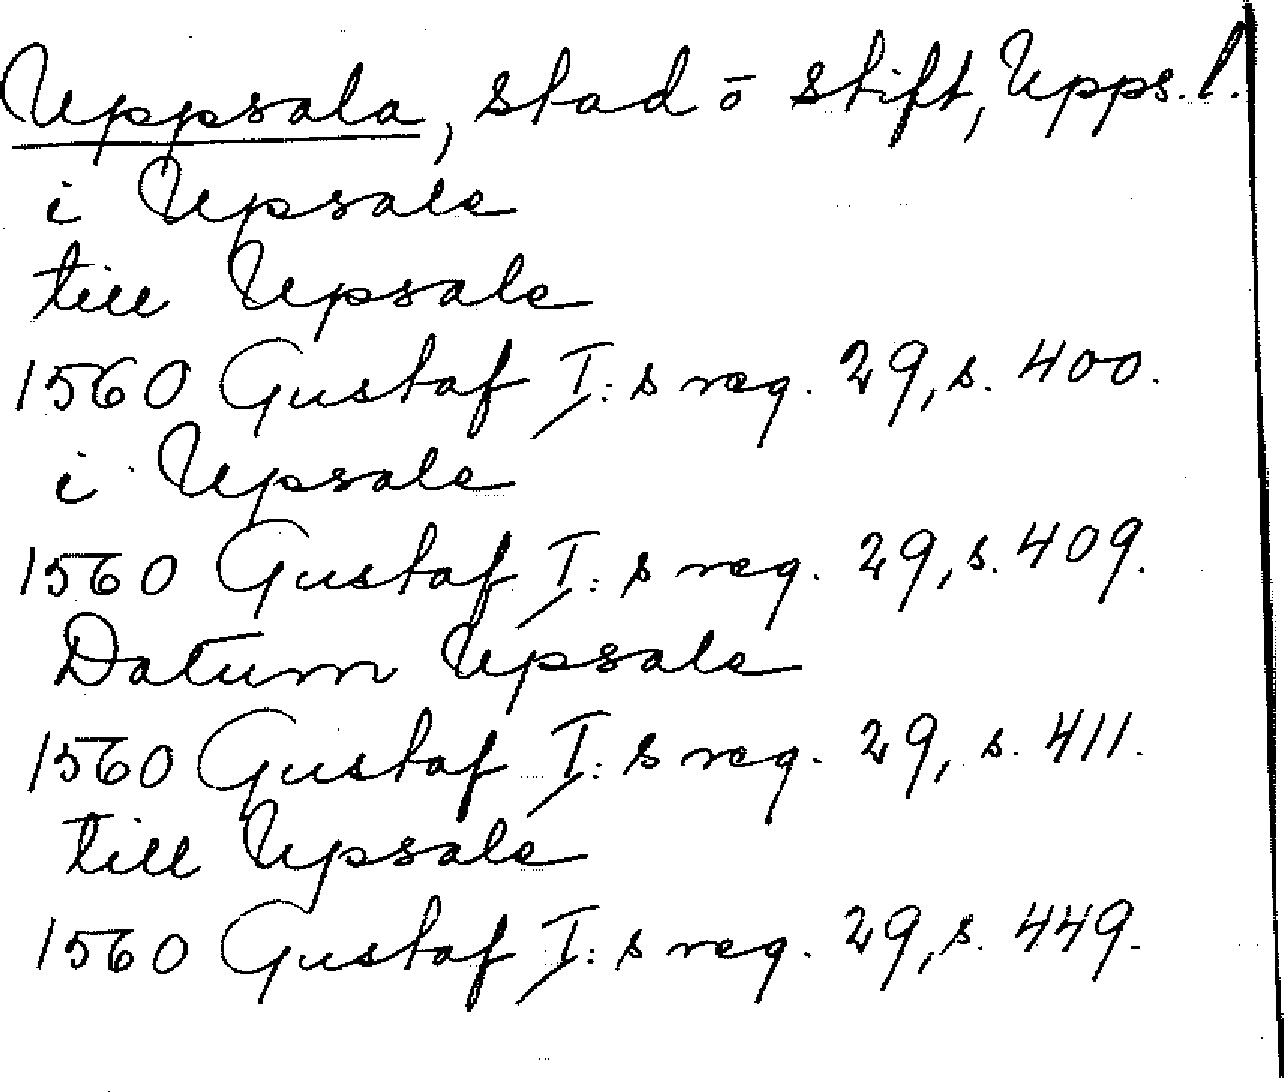 Uppsala, stad o stift, Upps. l.
i Upsale
till Upsale
1560 Gustaf I:s reg. 29, s. 400.
i Upsale
1560 Gustaf I:s reg. 29, s. 409.
Datum Upsale
1560 Gustaf I:s reg. 29, s. 411.
till Upsale
1560 Gustaf I:s reg. 29, s. 449.